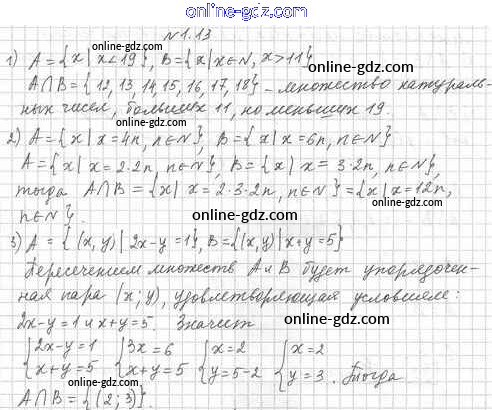 online-gdz.com
№1.13
online-gdz.com
1) A = {x | x < 19}, B = {x | x ∈ N, x > 11}
A∩B = {12, 13, 14, 15, 16, 17, 18} – множество натураль-
ных чисел, больших 11, но меньших 19.
online-gdz.com
2) A = {x | x = 4n, n∈N}, B = {x | x = 6n, n∈N}
A = {x | x = 2·2n, n∈N}, B = {x) x = 3·2n, n∈N},
online-gdz.com
тогда A∩B = {x | x = 2·3·2n, n∈N} = {x | x = 12n,
n∈N}.
online-gdz.com
3) A = {(x, y) | 2x-y = 1}, B = {(x, y) | x+y = 5}
online-gdz.com
Пересечением множеств A и B будет упорядочен-
ная пара (x; y), удовлетворяющая условиям:
2x-y = 1 и x+y = 5. Значит
online-gdz.com
{2x-y = 1 {3x = 6 {x = 2 {x = 2
x+y = 5 x+y = 5 y = 5-2 y = 3. Тогда
online-gdz.com
A∩B = {(2; 3)}.
online-gdz.com